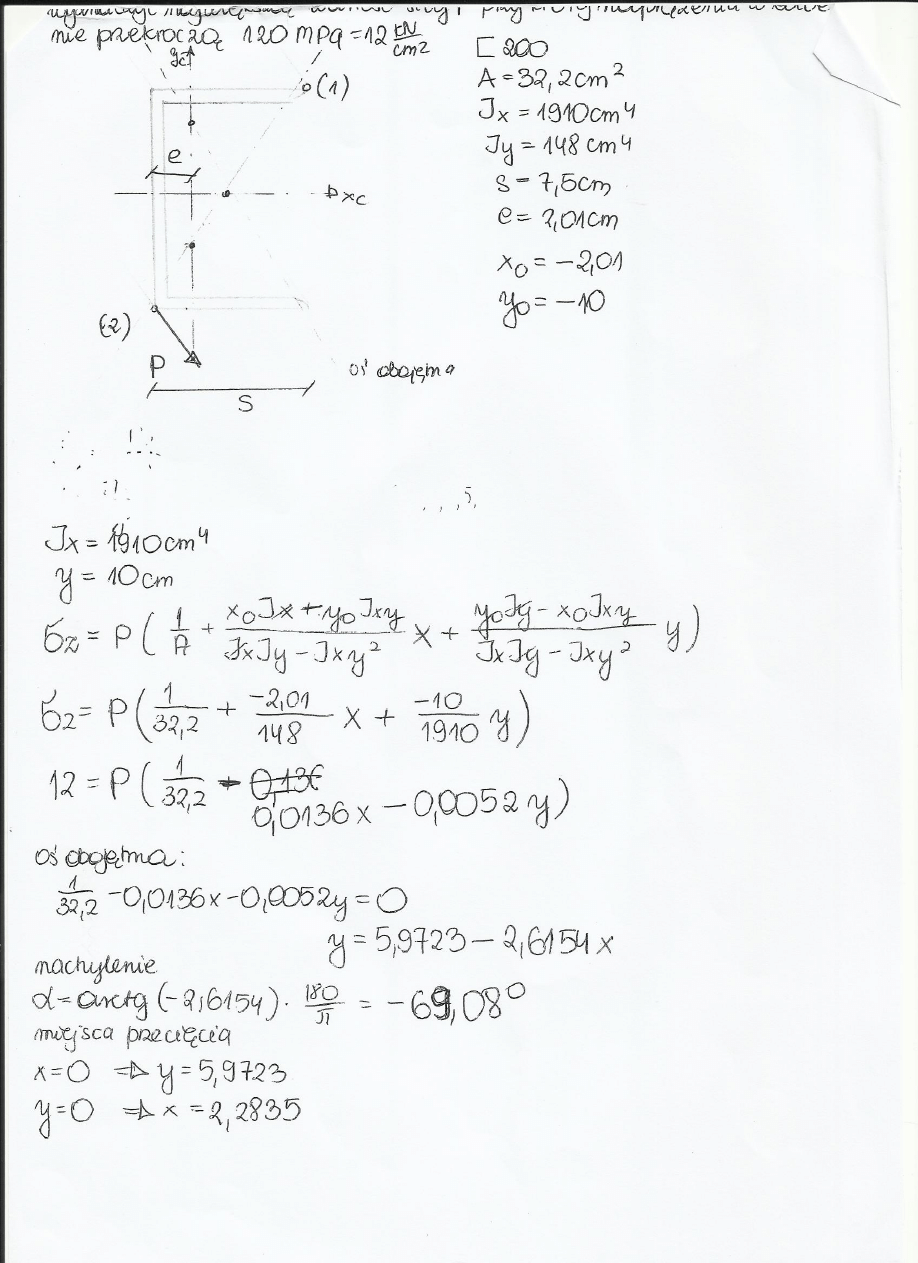 nie przekroczą 120 MPa = 12 kN/cm2
[ 200
A = 32,2 cm2
Jx = 1910 cm4
Jy = 148 cm4
s = 7,5 cm
e = 2,01 cm
x0 = -2,01
y0 = -10
yc
(1)
e
xc
(2)
P
S
oś obojętna
Jx = 1910 cm4
y = 10 cm
σz = P ( 1/A + (x0Jx + y0Jxy)/(JxJy - Jxy2) x + (y0Jy - x0Jxy)/(JxJy - Jxy2) y )
σz = P ( 1/32,2 + -2,01/148 x + -10/1910 y )
12 = P ( 1/32,2 - 0,0136x - 0,0052 y )
oś obojętna:
1/32,2 - 0,0136x - 0,0052y = 0
y = 5,9723 - 2,6154 x
nachylenie
α = arctg (-2,6154) · 180/π = -69,08°
miejsca przecięcia
x=0 ⇒ y = 5,9723
y=0 ⇒ x = 2,2835